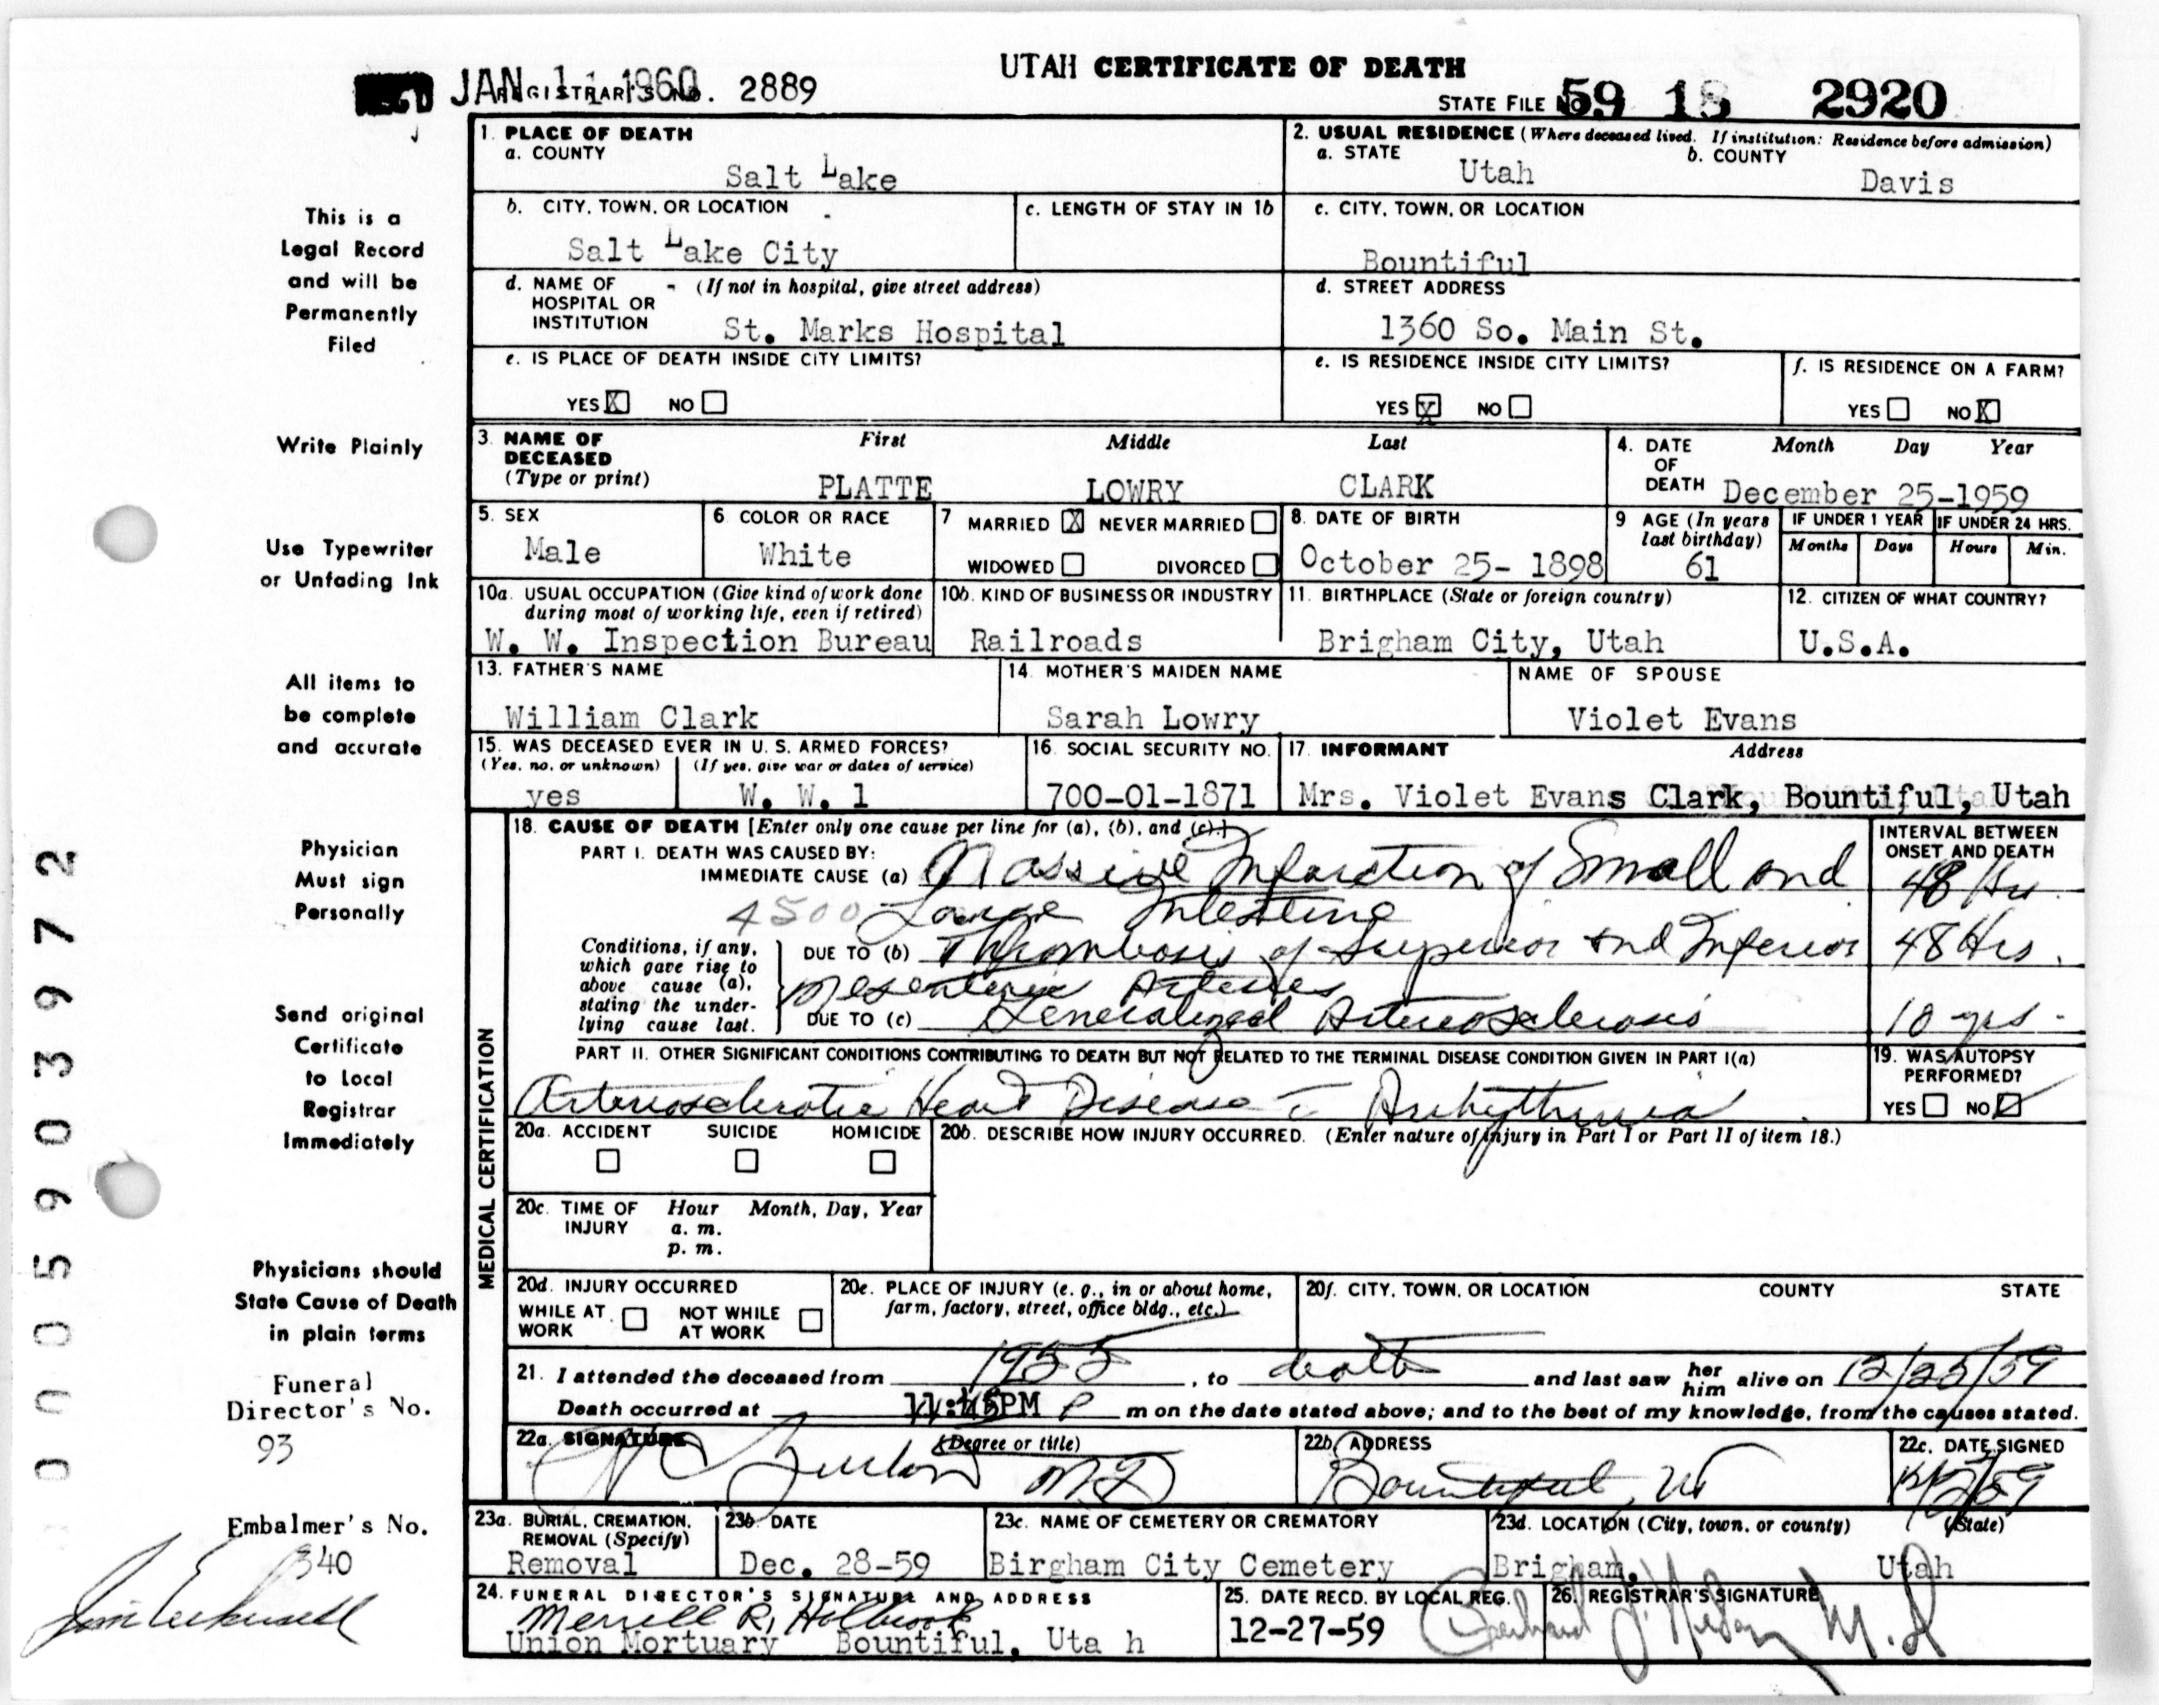 UTAH CERTIFICATE OF DEATH
REC'D JAN 11 1960 REGISTRAR'S NO. 2889
STATE FILE NO. 59 18 2920
1. PLACE OF DEATH
a. COUNTY
Salt Lake
2. USUAL RESIDENCE (Where deceased lived. If institution: Residence before admission)
a. STATE Utah
b. COUNTY Davis
b. CITY, TOWN, OR LOCATION
Salt Lake City
c. LENGTH OF STAY IN 1b
c. CITY, TOWN, OR LOCATION
Bountiful
d. NAME OF HOSPITAL OR INSTITUTION (If not in hospital, give street address)
St. Marks Hospital
d. STREET ADDRESS
1360 So. Main St.
e. IS PLACE OF DEATH INSIDE CITY LIMITS?
YES X NO
e. IS RESIDENCE INSIDE CITY LIMITS?
YES X NO
f. IS RESIDENCE ON A FARM?
YES NO X
3. NAME OF DECEASED (Type or print)
First Middle Last
PLATTE LOWRY CLARK
4. DATE OF DEATH Month Day Year
December 25-1959
5. SEX
Male
6. COLOR OR RACE
White
7 MARRIED X NEVER MARRIED
WIDOWED DIVORCED
8. DATE OF BIRTH
October 25- 1898
9 AGE (In years last birthday)
61
IF UNDER 1 YEAR
Months Days
IF UNDER 24 HRS.
Hours Min.
10a. USUAL OCCUPATION (Give kind of work done during most of working life, even if retired)
W. W. Inspection Bureau
10b. KIND OF BUSINESS OR INDUSTRY
Railroads
11. BIRTHPLACE (State or foreign country)
Brigham City, Utah
12. CITIZEN OF WHAT COUNTRY?
U.S.A.
13. FATHER'S NAME
William Clark
14. MOTHER'S MAIDEN NAME
Sarah Lowry
NAME OF SPOUSE
Violet Evans
15. WAS DECEASED EVER IN U. S. ARMED FORCES?
(Yes, no, or unknown) (If yes, give war or dates of service)
yes W. W. 1
16. SOCIAL SECURITY NO.
700-01-1871
17. INFORMANT Address
Mrs. Violet Evans Clark, Bountiful, Utah
MEDICAL CERTIFICATION
18. CAUSE OF DEATH [Enter only one cause per line for (a), (b), and (c).]
INTERVAL BETWEEN ONSET AND DEATH
PART I. DEATH WAS CAUSED BY:
IMMEDIATE CAUSE (a) Massive Infarction of Small and 48 Hrs
4500 Large Intestine
Conditions, if any, which gave rise to above cause (a), stating the underlying cause last.
DUE TO (b) Thrombosis of Superior and Inferior 48 Hrs.
Mesenteric Arteries
DUE TO (c) Generalized Arteriosclerosis 10 yrs.
PART II. OTHER SIGNIFICANT CONDITIONS CONTRIBUTING TO DEATH BUT NOT RELATED TO THE TERMINAL DISEASE CONDITION GIVEN IN PART I(a)
Arteriosclerotic Heart Disease c Arrhythmia
19. WAS AUTOPSY PERFORMED?
YES NO
20a. ACCIDENT SUICIDE HOMICIDE
20b. DESCRIBE HOW INJURY OCCURRED. (Enter nature of injury in Part I or Part II of item 18.)
20c. TIME OF INJURY Hour Month, Day, Year
a. m.
p. m.
20d. INJURY OCCURRED
WHILE AT WORK NOT WHILE AT WORK
20e. PLACE OF INJURY (e. g., in or about home, farm, factory, street, office bldg., etc.)
20f. CITY, TOWN, OR LOCATION COUNTY STATE
21. I attended the deceased from 1955, to death and last saw her him alive on 12/25/59
Death occurred at 11:45PM P m on the date stated above; and to the best of my knowledge, from the causes stated.
22a. SIGNATURE (Degree or title)
MD
22b. ADDRESS
Bountiful, Ut
22c. DATE SIGNED
23a. BURIAL, CREMATION, REMOVAL (Specify)
Removal
23b. DATE
Dec. 28-59
23c. NAME OF CEMETERY OR CREMATORY
Birgham City Cemetery
23d. LOCATION (City, town, or county) (State)
Brigham, Utah
24. FUNERAL DIRECTOR'S SIGNATURE AND ADDRESS
Merrill R. Holbrook
Union Mortuary Bountiful, Uta h
25. DATE RECD. BY LOCAL REG.
12-27-59
26. REGISTRAR'S SIGNATURE
M.D
This is a
Legal Record
and will be
Permanently
Filed
Write Plainly
Use Typewriter
or Unfading Ink
All items to
be complete
and accurate
Physician
Must sign
Personally
Send original
Certificate
to Local
Registrar
Immediately
Physicians should
State Cause of Death
in plain terms
Funeral
Director's No.
93
Embalmer's No.
340
0005903972